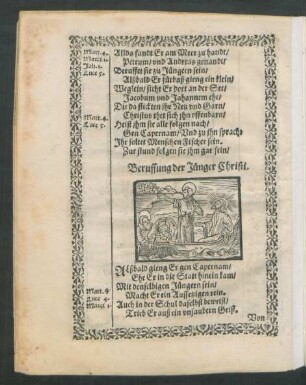 Matt. 4.
Marci 1.
Joh. 1.
Luc. 5.
Allda fandt Er am Meer zu handt/
Petrum/ vnd Andreas genandt/
Beruffet sie zu Jüngern sein/
Alßbald Er fürbaß gieng ein klein/
Weglein/ sicht Er dort an der See/
Jacobum vnd Johannem ehe/
Die da flickten ihr Netz vnd Garn/
Christus thet sich ihn offenbarn/
Matt. 4.
Luc. 5.
Heist ihm sie alle folgen nach/
Gen Capernaum/ Vnd zu ihn sprach:
Ihr solret Menschen Fischer sein.
Zur stund folgen sie ihm gar fein/
Beruffung der Jünger Christi.
Alßbald gieng Er gen Capernam/
Ehe Er in die Statt hinein kam/
Matt. 8.
Luc. 4.
Marci 1.
Mit denselbigen Jüngern sein/
Macht Er ein Aussetzigen rein.
Auch in der Schul daselbst beweist/
Trieb Er auß ein vnsaubern Geist.
Von